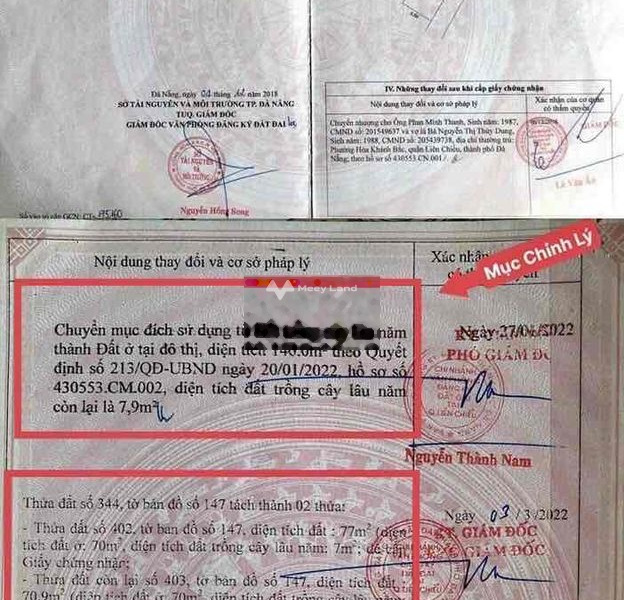 Đà Nẵng, ngày tháng năm 2018
SỞ TÀI NGUYÊN VÀ MÔI TRƯỜNG TP. ĐÀ NẴNG
TUQ. GIÁM ĐỐC
GIÁM ĐỐC VĂN PHÒNG ĐĂNG KÝ ĐẤT ĐAI
SỞ
TÀI NGUYÊN
VÀ
MÔI TRƯỜNG
Nguyễn Hồng Song
Số vào sổ cấp GCN: CT
IV. Những thay đổi sau khi cấp giấy chứng nhận
Nội dung thay đổi và cơ sở pháp lý
Xác nhận của cơ quan
có thẩm quyền
Chuyển nhượng cho Ông Phan Minh Thanh, Sinh năm: 1987,
CMND số: 201549637 và vợ là Bà Nguyễn Thị Thùy Dung,
Sinh năm: 1988, CMND số: 205439738, địa chỉ thường trú:
Phường Hòa Khánh Bắc, quận Liên Chiểu, thành phố Đà
Nẵng; theo hồ sơ số 430553.CN.001/
GIÁM ĐỐC
Lê Văn
Nội dung thay đổi và cơ sở pháp lý
Xác nhận
Mục Chỉnh Lý
Meey Land
Chuyển mục đích sử dụng từ năm
thành Đất ở tại đô thị, diện tích 140.0m² theo Quyết
định số 213/QĐ-UBND ngày 20/01/2022, hồ sơ số
430553.CM.002, diện tích đất trồng cây lâu năm
còn lại là 7,9m²
Ngày 27/01/2022
PHÓ GIÁM ĐỐC
CHI NHÁNH
Q.LIÊN CHIỂU
Nguyễn Thành Nam
Thửa đất số 344, tờ bản đồ số 147 tách thành 02 thửa:
- Thửa đất số 402, tờ bản số 147, diện tích đất : 77m² (diện
tích đất ở: 70m², diện tích đất trồng cây lâu năm: 7m²; đề cấp
Giấy chứng nhận;
- Thửa đất còn lại số 403, tờ bản đồ số 147, diện tích đất
70,9m² (diện tích đất ở: 70m², diện tích đất trồng cây lâu
Ngày 03/3/2022
KT. GIÁM ĐỐC
PHÓ GIÁM ĐỐC